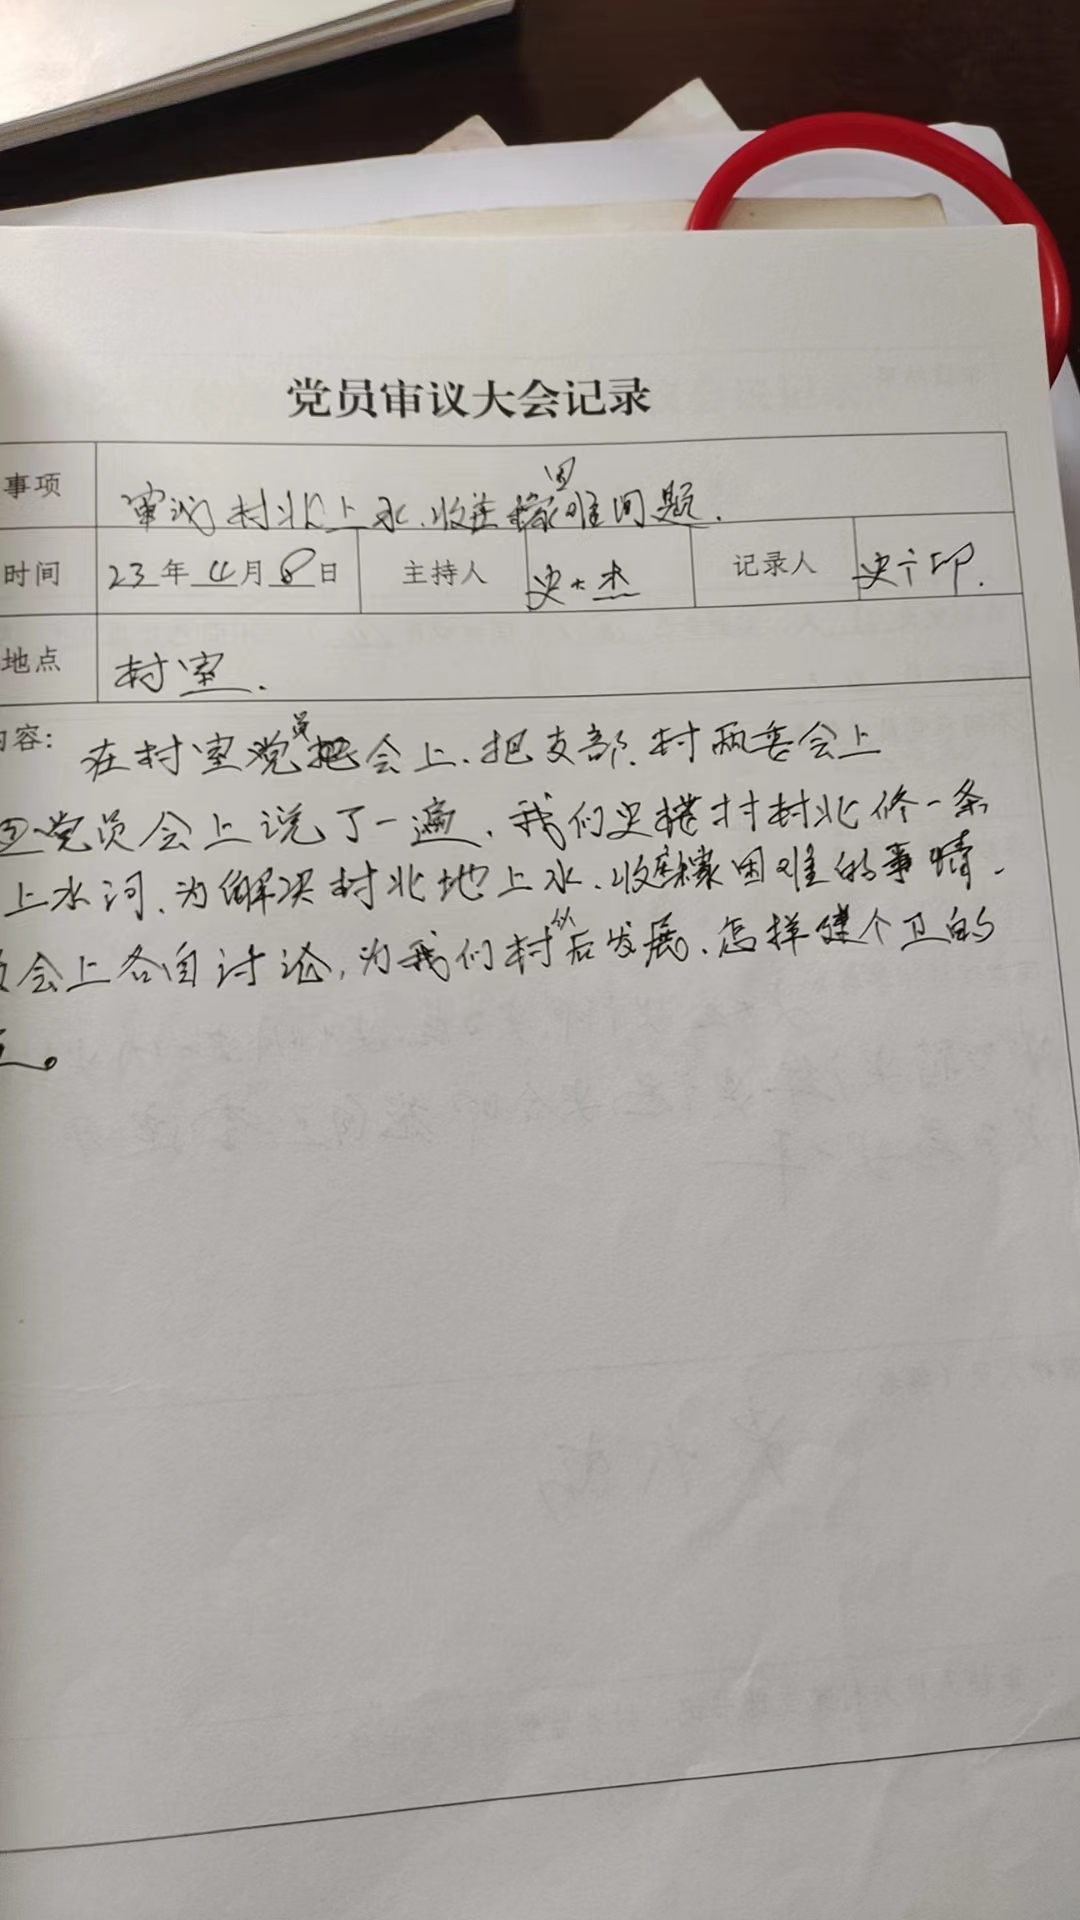 党员审议大会记录
事项 审议村北上水、收庄稼困难问题.
时间 23年4月8日 主持人 史大杰 记录人 史印.
地点 村室.
内容: 在村室党员会上、把支部、村两委会上
党员会上说了一遍,我们史楼村村北修一条
上水河、为解决村北地上水、收庄稼困难的事情.
会上各自讨论,为我们村以后发展、怎样建个卫的